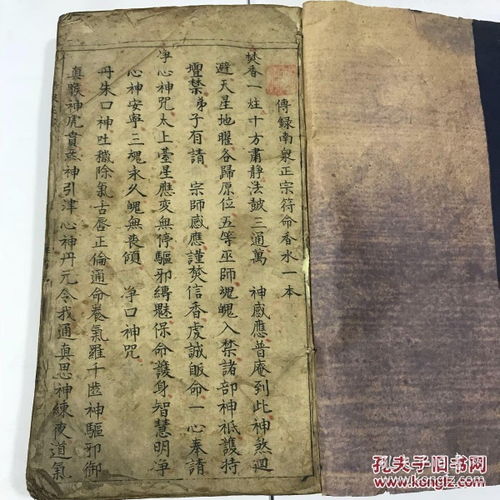 傳録南泉正宗符命香水一本
焚香一炷十方肅靜法鼓三通萬 神感應普庵到此神煞迴
避天星地曜各歸原位五等巫師魂魄入禁諸部神祇護持
壇禁弟子有請 宗師感應謹焚信香虔誠皈命一心奉請
净心神咒太上臺星應变無停驅邪縛魅保命護身智慧明净
心神安寧三魂永久魄無喪傾 净口神咒
丹朱口神吐穢除氛舌唇正倫通命養氣羅千齒神驅邪御
真喉神虎賁炁神引津心神丹元令我通真思神練夜道氣
孔夫子旧书网
www.kongfz.com